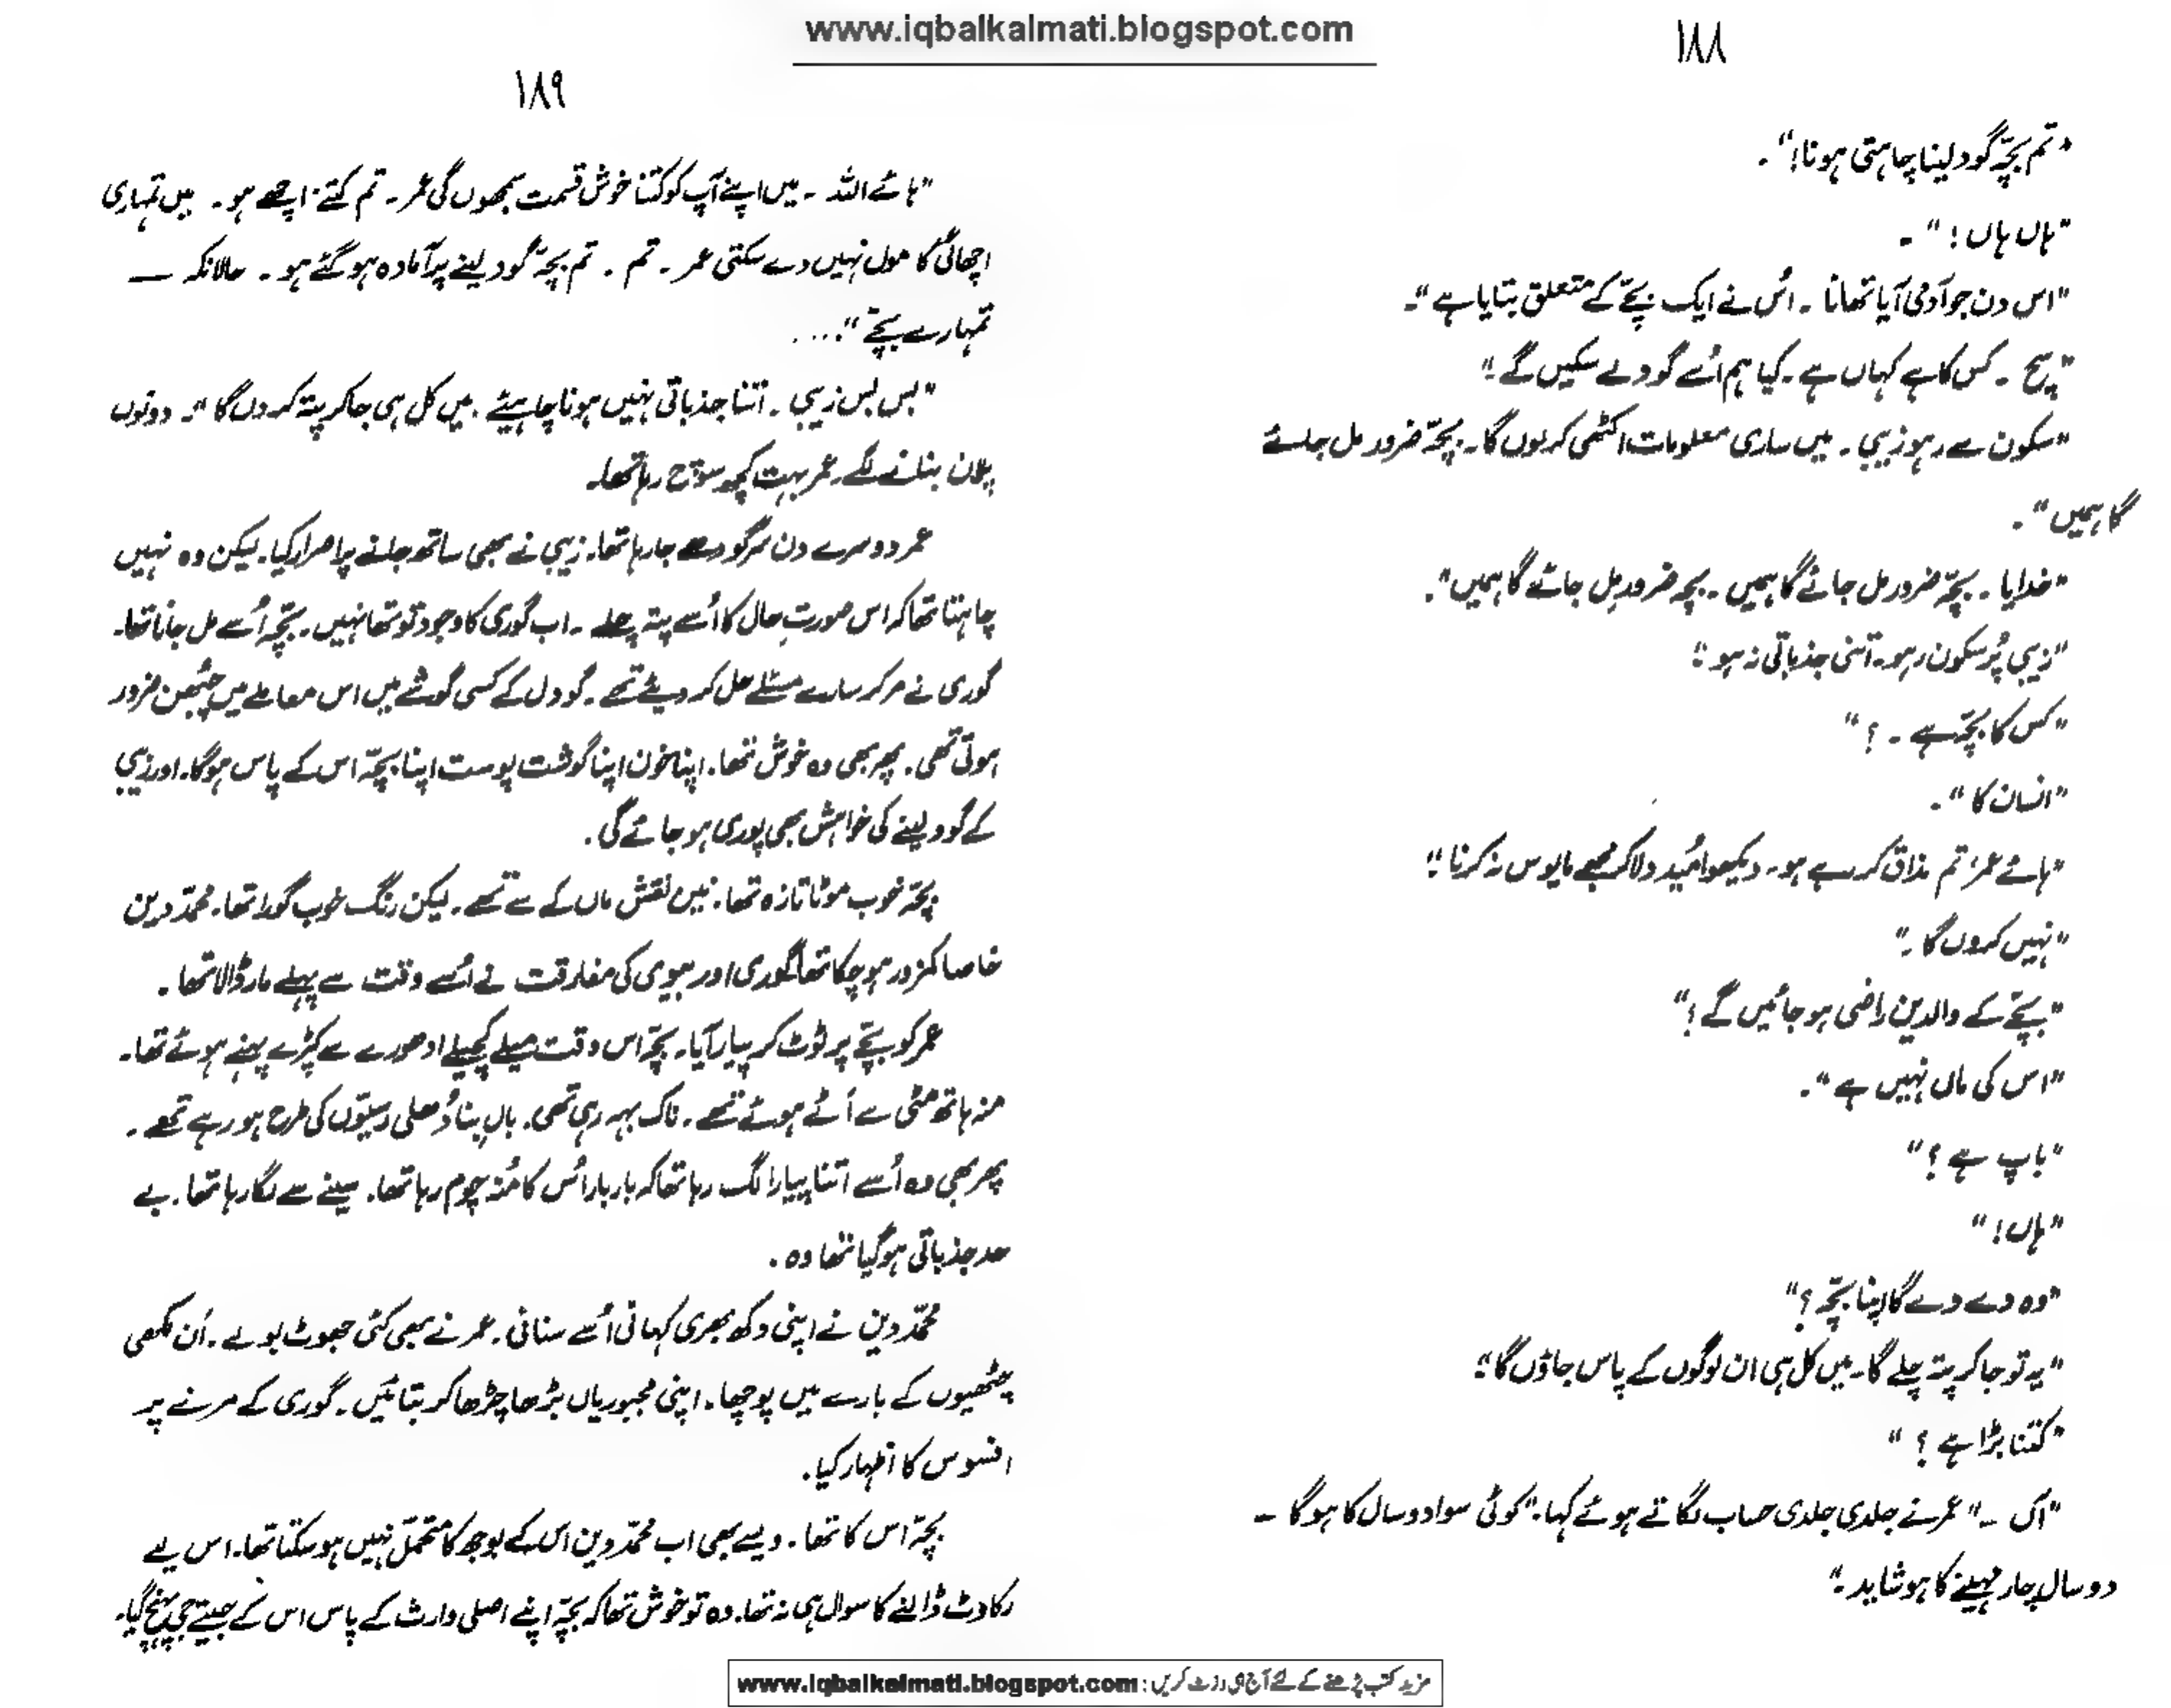 www.iqbalkalmati.blogspot.com
۱۸۸
"تم بچّہ گود لینا چاہتی ہو نا!"۔
"ہاں ہاں!"۔
"اس دن جو آدمی آیا تھا نا۔ اُس نے ایک بچّے کے متعلق بتایا ہے"۔
"سچ۔ کس کا ہے کہاں ہے۔ کیا ہم اُسے گود لے سکیں گے۔"
"سکون سے رہو زیبی۔ میں ساری معلومات اکٹھی کر لوں گا۔ بچّہ ضرور مل جائے
گا ہمیں"۔
"خدایا۔ بچّہ ضرور مل جائے گا ہمیں۔ بچہ ضرور مل جائے گا ہمیں"۔
"زیبی پُر سکون رہو۔ اتنی جذباتی نہ ہو"۔
"کس کا بچّہ ہے۔؟"
"انسان کا"۔
"ہائے عمر تم مذاق کر رہے ہو۔ دیکھو امُید دلا کر مجھے مایوس نہ کرنا"؛
"نہیں کروں گا۔"
"بچّے کے والدین راضی ہو جائیں گے؟"
"اس کی ماں نہیں ہے"۔
"باپ ہے؟"
"ہاں!"
"وہ دے دے گا اپنا بچّہ؟"
"یہ تو جا کر پتہ چلے گا۔ میں کل ہی ان لوگوں کے پاس جاؤں گا"؛
"کتنا بڑا ہے؟"
"اک ۔" عمر نے جلدی جلدی حساب لگاتے ہوئے کہا۔ "کوئی سوا دو سال کا ہوگا ۔
دو سال چار مہینے کا ہو شاید۔"
۱۸۹
"ہائے اللہ۔ میں اپنے آپ کو کتنا خوش قسمت سمجھوں گی عمر۔ تم کتنے اچھے ہو۔ میں تمہاری
اچھائی کا مول نہیں دے سکتی عمر۔ تم۔ تم بچّہ گود لینے پر آمادہ ہو گئے ہو۔ حالانکہ ــ
تمہارے بچّے"....
"بس بس زیبی۔ اتنا جذباتی نہیں ہونا چاہیئے۔ میں کل ہی جا کر پتہ کر دں گا"۔ دونوں
پلان بنانے لگے۔ عمر بہت کچھ سوچ رہا تھا۔
عمر دوسرے دن سرگودھے جا رہا تھا۔ زیبی نے بھی ساتھ جانے پر اصرار کیا۔ لیکن وہ نہیں
چاہتا تھا کہ اس صورتِ حال کا اُسے پتہ چلے۔ اب گوری کا وجود تو تھا نہیں۔ بچّہ اُسے مل جانا تھا۔
گوری نے مر کر سارے مسئلے حل کر دیئے تھے۔ گو دل کے کسی گوشے میں اس معاملے میں چُبھن ضرور
ہوتی تھی۔ پھر بھی وہ خوش تھا۔ اپنا خون اپنا گوشت پوست اپنا بچّہ اس کے پاس ہوگا۔ اور زیبی
کے گود لینے کی خواہش بھی پوری ہو جائے گی۔
بچّہ خوب موٹا تازہ تھا۔ نین نقش ماں کے سے تھے۔ لیکن رنگ خوب گورا تھا۔ محمّد دین
خاصا کمزور ہو چکا تھا گوری اور بیوی کی مفارقت نے اُسے وقت سے پہلے مار ڈالا تھا۔
عمر کو بچّے پر ٹوٹ کر پیار آیا۔ بچّہ اس وقت میلے کچیلے ادھورے سے کپڑے پہنے ہوئے تھا۔
منہ ہاتھ مٹی سے اَٹے ہوئے تھے۔ ناک بہہ رہی تھی۔ بال بنا دُھلی رسیّوں کی طرح ہو رہے تھے۔
پھر بھی وہ اُسے اتنا پیارا لگ رہا تھا کہ بار بار اُس کا مُنہ چوم رہا تھا۔ سینے سے لگا رہا تھا۔ بے
حد جذباتی ہو گیا تھا وہ۔
محمّد دین نے اپنی دکھ بھری کہانی اُسے سنائی۔ عمر نے بھی کئی جھوٹ بولے۔ اُن لکھی
چٹھیوں کے بارے میں پوچھا۔ اپنی مجبوریاں بڑھا چڑھا کر بتائیں۔ گوری کے مرنے پر
افسوس کا اظہار کیا۔
بچّہ اس کا تھا۔ ویسے بھی اب محمّد دین اس کے بوجھ کا متحمّل نہیں ہو سکتا تھا۔ اس لیے
رکاوٹ ڈالنے کا سوال ہی نہ تھا۔ وہ تو خوش تھا کہ بچّہ اپنے اصلی وارث کے پاس اس کے جیتے جی پہنچ گیا۔
مزید کتب پڑھنے کے لئے آج ہی وزٹ کریں : www.iqbalkalmati.blogspot.com